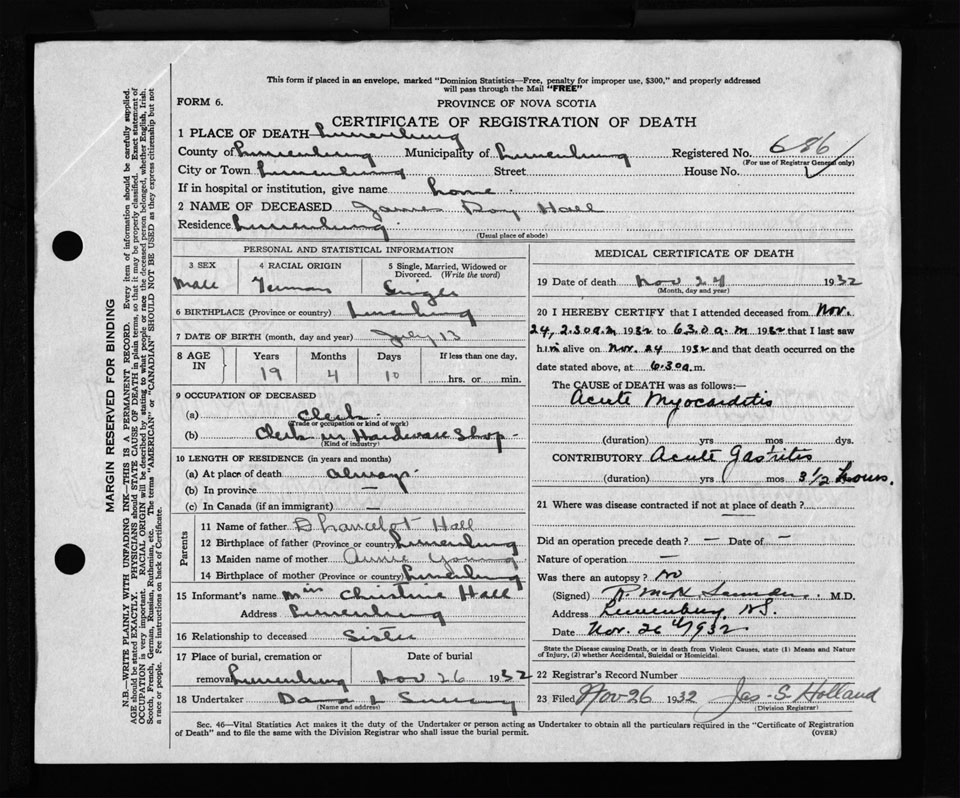 This form if placed in an envelope, marked "Dominion Statistics—Free, penalty for improper use, $300," and properly addressed
will pass through the Mail "FREE"
FORM 6.
PROVINCE OF NOVA SCOTIA
CERTIFICATE OF REGISTRATION OF DEATH
1 PLACE OF DEATH Lunenburg
County of Lunenburg Municipality of Lunenburg Registered No. 686
(For use of Registrar General only)
City or Town Lunenburg Street House No.
If in hospital or institution, give name home
2 NAME OF DECEASED James Roy Hall
Residence Lunenburg
(Usual place of abode)
PERSONAL AND STATISTICAL INFORMATION
3 SEX 4 RACIAL ORIGIN 5 Single, Married, Widowed or
Divorced. (Write the word)
Male German Single
6 BIRTHPLACE (Province or country) Lunenburg
7 DATE OF BIRTH (month, day and year) July 13
8 AGE IN Years Months Days If less than one day,
19 4 10 hrs. or min.
9 OCCUPATION OF DECEASED
(a) Clerk
(Trade or occupation or kind of work)
(b) Clerk in Hardware Shop
(Kind of industry)
10 LENGTH OF RESIDENCE (in years and months)
(a) At place of death always
(b) In province —
(c) In Canada (if an immigrant) —
Parents
11 Name of father Hall
12 Birthplace of father (Province or country) Lunenburg
13 Maiden name of mother Annie Young
14 Birthplace of mother (Province or country) Lunenburg
15 Informant's name Miss Christine Hall
Address Lunenburg
16 Relationship to deceased Sister
17 Place of burial, cremation or Date of burial
removal Lunenburg Nov 26 1932
18 Undertaker
(Name and address)
MEDICAL CERTIFICATE OF DEATH
19 Date of death Nov 24 1932
(Month, day and year)
20 I HEREBY CERTIFY that I attended deceased from Nov.
24, 2.30 a.m 1932 to 6.30 a.m 1932 that I last saw
him alive on Nov. 24 1932 and that death occurred on the
date stated above, at 6.30 a.m.
The CAUSE OF DEATH was as follows:—
Acute Myocarditis
(duration) yrs mos dys.
CONTRIBUTORY Acute Gastritis
(duration) yrs mos 3 1/2 hours.
21 Where was disease contracted if not at place of death?
Did an operation precede death? — Date of —
Nature of operation —
Was there an autopsy? no
(Signed) M.D.
Address Lunenburg, N.S.
Date Nov. 26 1932
State the Disease causing Death, or in death from Violent Causes, state (1) Means and Nature
of Injury, (2) whether Accidental, Suicidal or Homicidal.
22 Registrar's Record Number
23 Filed Nov 26 1932 Jas. S. Holland
(Division Registrar)
Sec. 46—Vital Statistics Act makes it the duty of the Undertaker or person acting as Undertaker to obtain all the particulars required in the "Certificate of Registration
of Death" and to file the same with the Division Registrar who shall issue the burial permit.
(OVER)
MARGIN RESERVED FOR BINDING
N.B.—WRITE PLAINLY WITH UNFADING INK—THIS IS A PERMANENT RECORD. Every item of information should be carefully supplied.
AGE should be stated EXACTLY. PHYSICIANS should STATE CAUSE OF DEATH in plain terms, so that it may be properly classified. Exact statement of
OCCUPATION is very important. RACIAL ORIGIN will be described by stating to what people or race the deceased person belonged, whether English, Irish,
Scotch, French, German, Russian, Ruthenian, etc. The terms "AMERICAN" or "CANADIAN" SHOULD NOT BE USED as they express citizenship but not
a race or people. Fee instructions on back of Certificate.